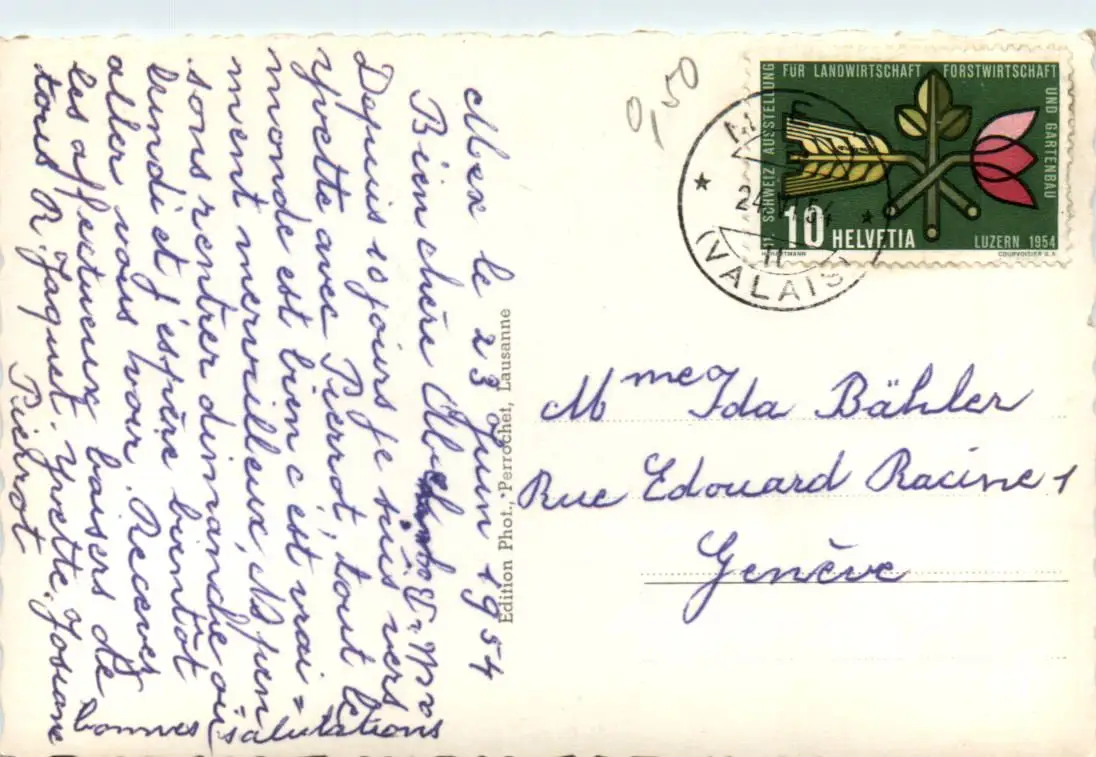 Mex le 23 Juin 1954
Bien chère
Depuis 10 jours je suis vers
yvette avec Pierrot, tout le
monde est bien c'est vrai=
ment merveilleux, ns pen
sons rentrer dimanche ou
lundi et j'espère bientôt
aller vous voir. Recevez
les affectueux baisers de
tous R. Jaquet. yvette. Josiane
Pierrot
bonnes salutations
Edition Phot., Perrochet, Lausanne
0,50
11. SCHWEIZ AUSSTELLUNG FÜR LANDWIRTSCHAFT FORSTWIRTSCHAFT UND GARTENBAU
10 HELVETIA
LUZERN 1954
H. HARTMANN
COURVOISIER S.A.
MEX
24. VI 54
(VALAIS)
Mme Ida Bähler
Rue Edouard Racine 1
Genève